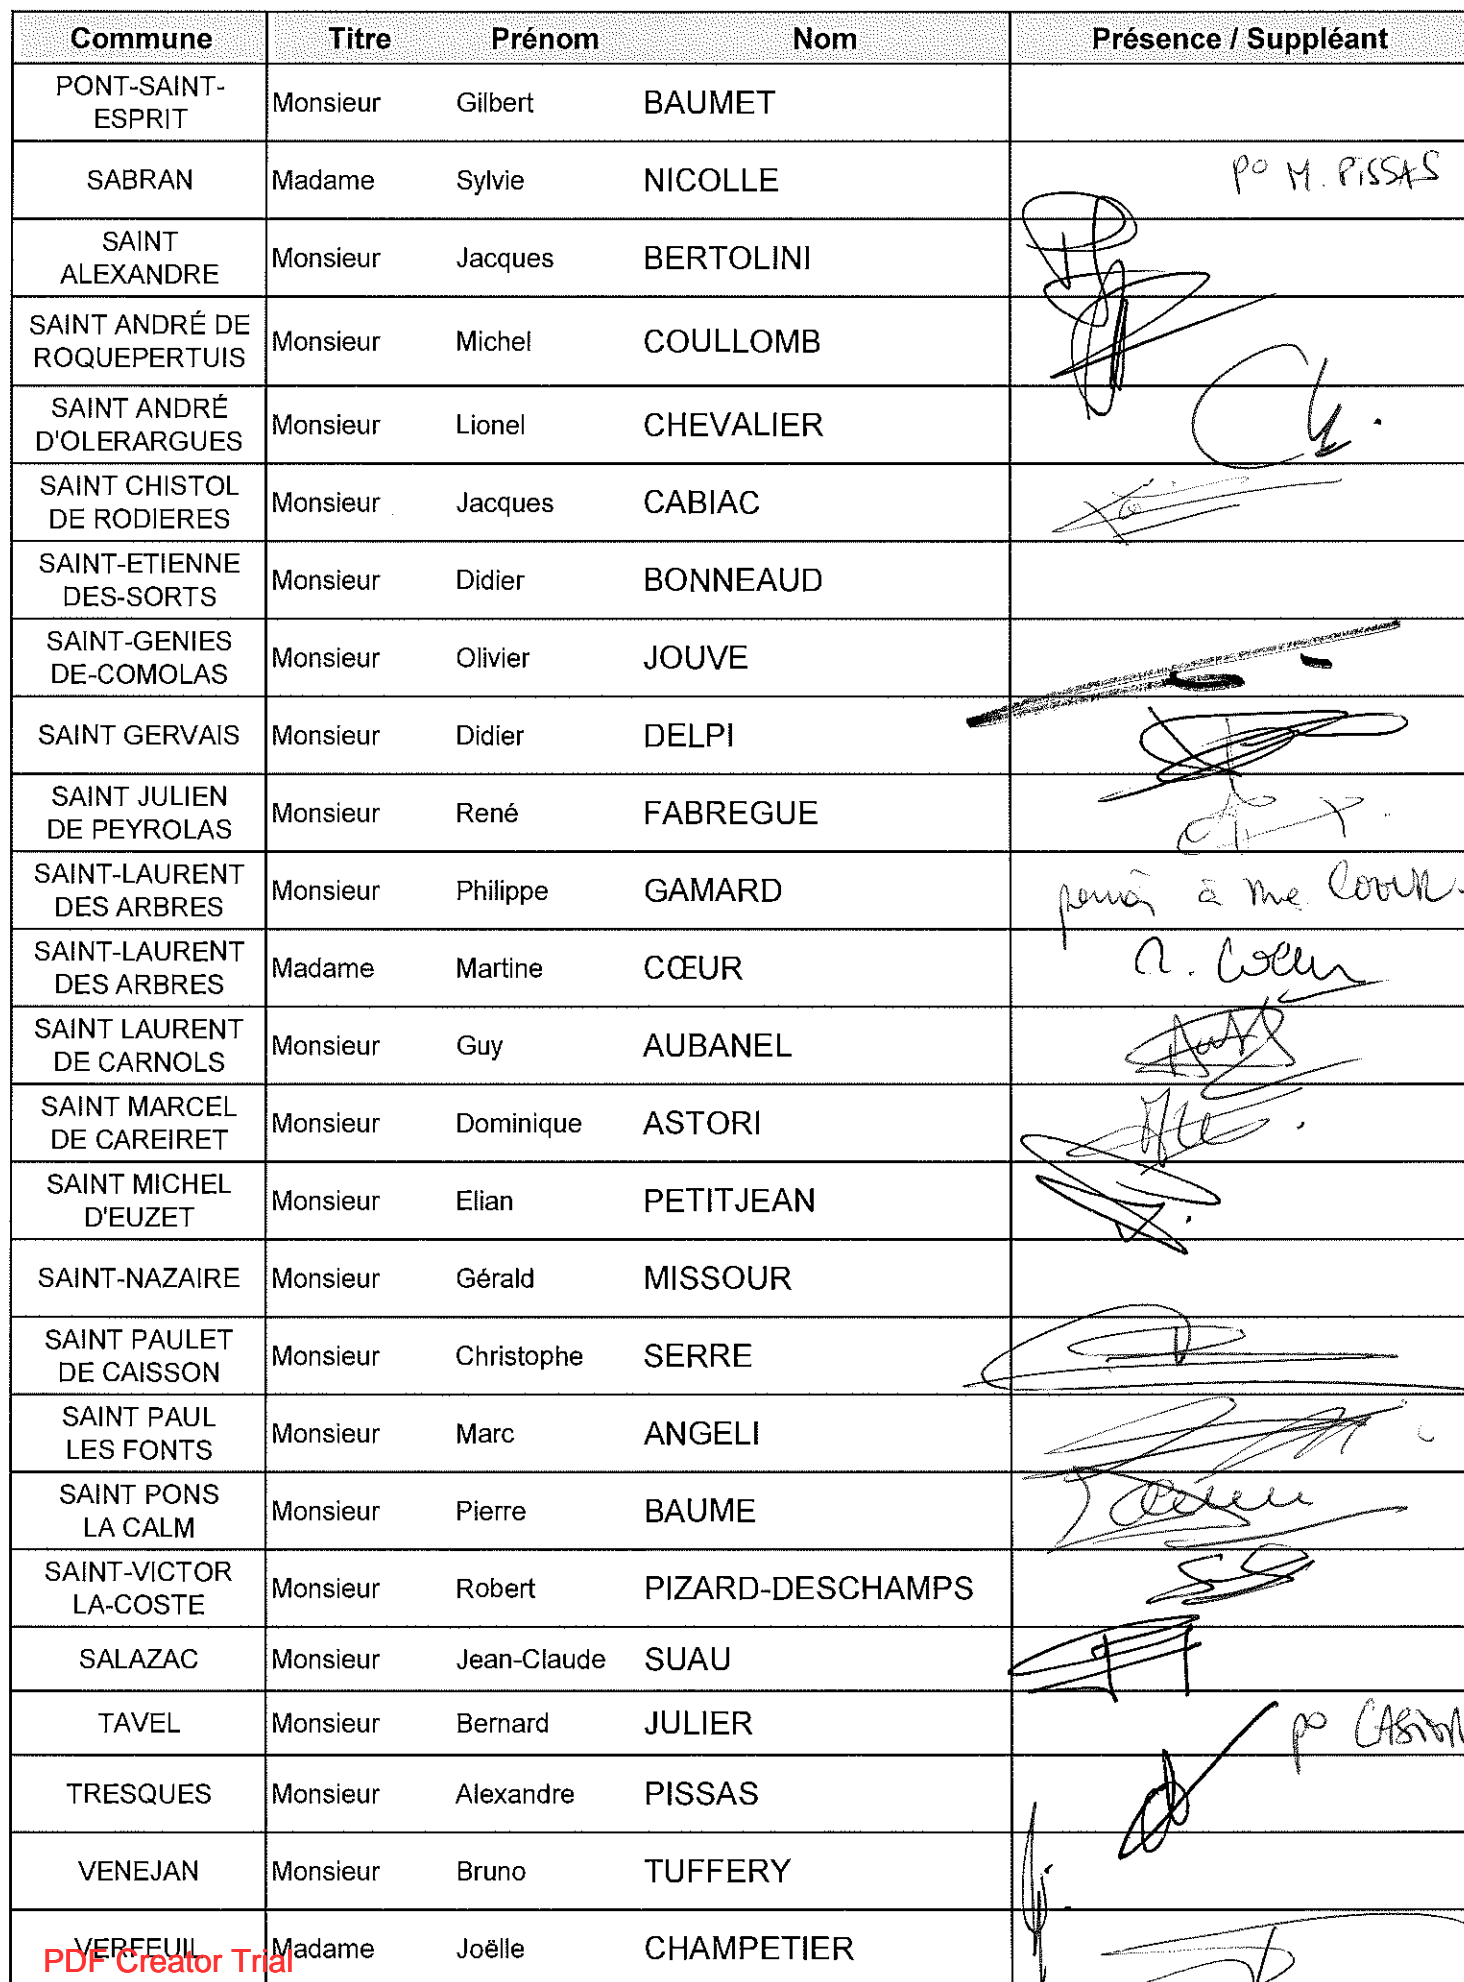 Commune Titre Prénom Nom Présence / Suppléant
PONT-SAINT-
ESPRIT Monsieur Gilbert BAUMET
SABRAN Madame Sylvie NICOLLE po M. PISSAS
SAINT
ALEXANDRE Monsieur Jacques BERTOLINI
SAINT ANDRÉ DE
ROQUEPERTUIS Monsieur Michel COULLOMB
SAINT ANDRÉ
D'OLERARGUES Monsieur Lionel CHEVALIER
SAINT CHISTOL
DE RODIERES Monsieur Jacques CABIAC
SAINT-ETIENNE
DES-SORTS Monsieur Didier BONNEAUD
SAINT-GENIES
DE-COMOLAS Monsieur Olivier JOUVE
SAINT GERVAIS Monsieur Didier DELPI
SAINT JULIEN
DE PEYROLAS Monsieur René FABREGUE
SAINT-LAURENT
DES ARBRES Monsieur Philippe GAMARD à Me
SAINT-LAURENT
DES ARBRES Madame Martine CŒUR
SAINT LAURENT
DE CARNOLS Monsieur Guy AUBANEL
SAINT MARCEL
DE CAREIRET Monsieur Dominique ASTORI
SAINT MICHEL
D'EUZET Monsieur Elian PETITJEAN
SAINT-NAZAIRE Monsieur Gérald MISSOUR
SAINT PAULET
DE CAISSON Monsieur Christophe SERRE
SAINT PAUL
LES FONTS Monsieur Marc ANGELI
SAINT PONS
LA CALM Monsieur Pierre BAUME
SAINT-VICTOR
LA-COSTE Monsieur Robert PIZARD-DESCHAMPS
SALAZAC Monsieur Jean-Claude SUAU
TAVEL Monsieur Bernard JULIER po
TRESQUES Monsieur Alexandre PISSAS
VENEJAN Monsieur Bruno TUFFERY
VERFEUIL Madame Joëlle CHAMPETIER
PDF Creator Trial